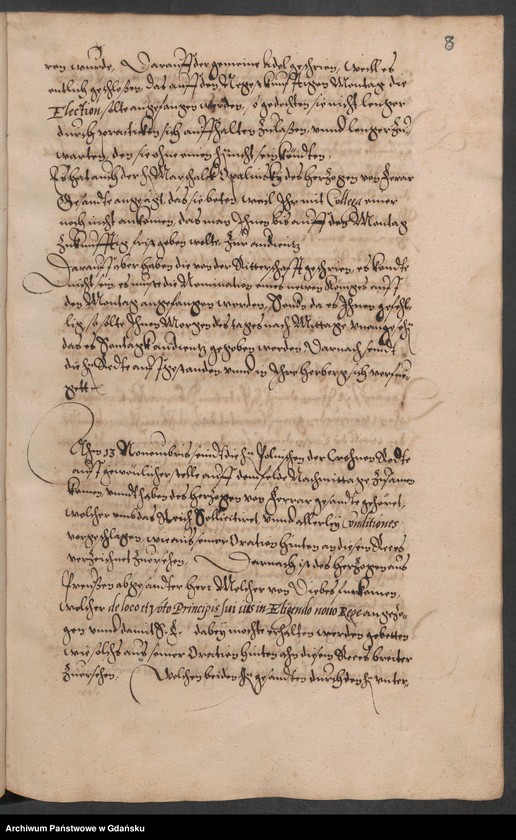 8
ren wurde. Darauff der gemeine Adel geschrien, weill es
entlich geschloßen, das auff den Negstkunfftigen Montag die
Election solte angefangen werden, so gedechten sie nicht lenger
durch practiken sich auffhalten zulaßen, unnd lenger zu
warten, den sie ohne einen König nicht sein köndten.
Es hat auch der H. Marschalk Opalinsky des herzogen von Ferrar
Gesandte angesagt, das sie beten, weil Ihr mit Collega einer
noch nicht ankomen, das man Ihnen bis auff den Montag
zukunfftig frist geben wolte, zur audientz
Darauff aber haben die von der Ritterschafft geschrien, es kondte
nicht sein, es müste die Nomination eines neuen Königes auff
den Montag angefangen werden, Sondern da es Ihnen gefel
lig, so solte Ihnen Morgen des tages nach Mittage unangesehen
das es Sontagk audientz gegeben werden, Darnach seindt
die H. Redte auffgestanden unnd in Ihre herberg sich verfue
gett
Ahm 13 Nouembris seindt die H. Polnischen der Crohnen Redte
auff gewönlicher stelle auff dem felde Nachmittage zusamen
komen, unndt haben des herzogen von Ferrar gesandte gehöret,
welcher umb das Reich Solliecitiret, unnd allerley Conditiones
vorgeschlagen, wie aus seiner Oration hinten an diesen Reces
verzeichnet zuersehen. Darnach ist des herzogen aus
Preußen abgesandter herr Melcher von Diebes furkomen,
welcher de loco et voto Principis sui iuis in Eligendo nouo Rege angezo-
gen unnd damit S. F. dabey mochte erhalten werden gebetten
wie solchs aus seiner Oration hinten ahn diesem Reces breiter
zuersehen, Welchen beiden H. gesandten durch den H. unter
Archiwum Państwowe w Gdańsku